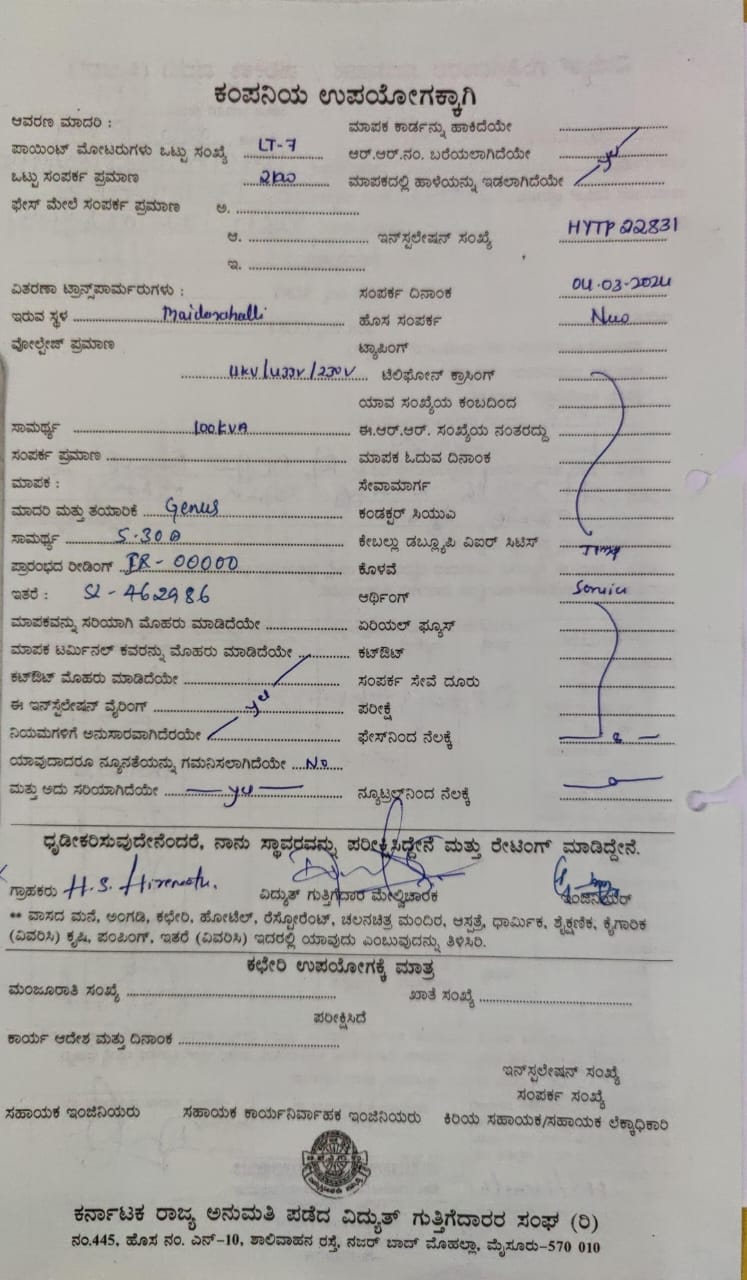 ಕಂಪನಿಯ ಉಪಯೋಗಕ್ಕಾಗಿ
ಆವರಣ ಮಾದರಿ : ಮಾಪಕ ಕಾರ್ಡನ್ನು ಹಾಕಿದೆಯೇ ....................
ಪಾಯಿಂಟ್ ಮೋಟರುಗಳು ಒಟ್ಟು ಸಂಖ್ಯೆ LT-7 ಆರ್.ಆರ್.ನಂ. ಬರೆಯಲಾಗಿದೆಯೇ ....................
ಒಟ್ಟು ಸಂಪರ್ಕ ಪ್ರಮಾಣ ಮಾಪಕದಲ್ಲಿ ಹಾಳೆಯನ್ನು ಇಡಲಾಗಿದೆಯೇ ....................
ಫೇಸ್ ಮೇಲೆ ಸಂಪರ್ಕ ಪ್ರಮಾಣ ಅ. ....................
ಆ. .................... ಇನ್‌ಸ್ಟಲೇಷನ್ ಸಂಖ್ಯೆ HYTP22831
ಇ. ....................
ವಿತರಣಾ ಟ್ರಾನ್ಸ್‌ಪಾರ್ಮರುಗಳು : ಸಂಪರ್ಕ ದಿನಾಂಕ 04.03-2024
ಇರುವ ಸ್ಥಳ Maidanahalli ಹೊಸ ಸಂಪರ್ಕ
ವೋಲ್ಟೇಜ್ ಪ್ರಮಾಣ ಟ್ಯಾಪಿಂಗ್ ....................
11KV/433V/230V ಟೆಲಿಫೋನ್ ಕ್ರಾಸಿಂಗ್ ....................
ಯಾವ ಸಂಖ್ಯೆಯ ಕಂಬದಿಂದ ....................
ಸಾಮರ್ಥ್ಯ 100KVA ಈ.ಆರ್.ಆರ್. ಸಂಖ್ಯೆಯ ನಂತರದ್ದು ....................
ಸಂಪರ್ಕ ಪ್ರಮಾಣ .................... ಮಾಪಕ ಓದುವ ದಿನಾಂಕ ....................
ಮಾಪಕ : ಸೇವಾಮಾರ್ಗ ....................
ಮಾದರಿ ಮತ್ತು ತಯಾರಿಕೆ Genus ಕಂಡಕ್ಟರ್ ಸಿಯುಎ ....................
ಸಾಮರ್ಥ್ಯ 5-30A ಕೇಬಲ್ಲು ಡಬ್ಲ್ಯೂಪಿ ವಿಐರ್ ಸಿಟಿಸ್ ....................
ಪ್ರಾರಂಭದ ರೀಡಿಂಗ್ IR-00000 ಕೊಳವೆ
ಇತರೆ : Sl-462986 ಆರ್ಥಿಂಗ್
ಮಾಪಕವನ್ನು ಸರಿಯಾಗಿ ಮೊಹರು ಮಾಡಿದೆಯೇ .................... ಏರಿಯಲ್ ಫ್ಯೂಸ್ ....................
ಮಾಪಕ ಟರ್ಮಿನಲ್ ಕವರನ್ನು ಮೊಹರು ಮಾಡಿದೆಯೇ .................... ಕಟ್‌ಔಟ್ ....................
ಕಟ್‌ಔಟ್ ಮೊಹರು ಮಾಡಿದೆಯೇ .................... ಸಂಪರ್ಕ ಸೇವೆ ದೂರು ....................
ಈ ಇನ್‌ಸ್ಟಲೇಷನ್ ವೈರಿಂಗ್ .................... ಪರೀಕ್ಷೆ ....................
ನಿಯಮಗಳಿಗೆ ಅನುಸಾರವಾಗಿದೆರಯೇ ಫೇಸ್‌ನಿಂದ ನೆಲಕ್ಕೆ
ಯಾವುದಾದರೂ ನ್ಯೂನತೆಯನ್ನು ಗಮನಿಸಲಾಗಿದೆಯೇ No
ಮತ್ತು ಅದು ಸರಿಯಾಗಿದೆಯೇ ನ್ಯೂಟ್ರಲ್‌ನಿಂದ ನೆಲಕ್ಕೆ
ಧೃಡೀಕರಿಸುವುದೇನೆಂದರೆ, ನಾನು ಸ್ಥಾವರವನ್ನು ಪರೀಕ್ಷಿಸಿದ್ದೇನೆ ಮತ್ತು ರೇಟಿಂಗ್ ಮಾಡಿದ್ದೇನೆ.
ಗ್ರಾಹಕರು H.S. Hiremath. ವಿದ್ಯುತ್ ಗುತ್ತಿಗೆದಾರ ಮೇಲ್ವಿಚಾರಕ ಇಂಜಿನಿಯರ್
** ವಾಸದ ಮನೆ, ಅಂಗಡಿ, ಕಛೇರಿ, ಹೋಟೆಲ್, ರೆಸ್ಟೋರೆಂಟ್, ಚಲನಚಿತ್ರ ಮಂದಿರ, ಆಸ್ಪತ್ರೆ, ಧಾರ್ಮಿಕ, ಶೈಕ್ಷಣಿಕ, ಕೈಗಾರಿಕ
(ವಿವರಿಸಿ) ಕೃಷಿ, ಪಂಪಿಂಗ್, ಇತರೆ (ವಿವರಿಸಿ) ಇದರಲ್ಲಿ ಯಾವುದು ಎಂಬುವುದನ್ನು ತಿಳಿಸಿರಿ.
ಕಛೇರಿ ಉಪಯೋಗಕ್ಕೆ ಮಾತ್ರ
ಮಂಜೂರಾತಿ ಸಂಖ್ಯೆ .................... ಖಾತೆ ಸಂಖ್ಯೆ ....................
ಪರೀಕ್ಷಿಸಿದೆ
ಕಾರ್ಯ ಆದೇಶ ಮತ್ತು ದಿನಾಂಕ ....................
ಇನ್‌ಸ್ಟಲೇಷನ್ ಸಂಖ್ಯೆ
ಸಂಪರ್ಕ ಸಂಖ್ಯೆ
ಸಹಾಯಕ ಇಂಜಿನಿಯರು ಸಹಾಯಕ ಕಾರ್ಯನಿರ್ವಾಹಕ ಇಂಜಿನಿಯರು ಕಿರಿಯ ಸಹಾಯಕ/ಸಹಾಯಕ ಲೆಕ್ಕಾಧಿಕಾರಿ
ಕರ್ನಾಟಕ ರಾಜ್ಯ ಅನುಮತಿ ಪಡೆದ ವಿದ್ಯುತ್ ಗುತ್ತಿಗೆದಾರರ ಸಂಘ (ರಿ)
ನಂ.445, ಹೊಸ ನಂ. ಎನ್-10, ಶಾಲಿವಾಹನ ರಸ್ತೆ, ನಜರ್ ಬಾದ್ ಮೊಹಲ್ಲಾ, ಮೈಸೂರು-570 010